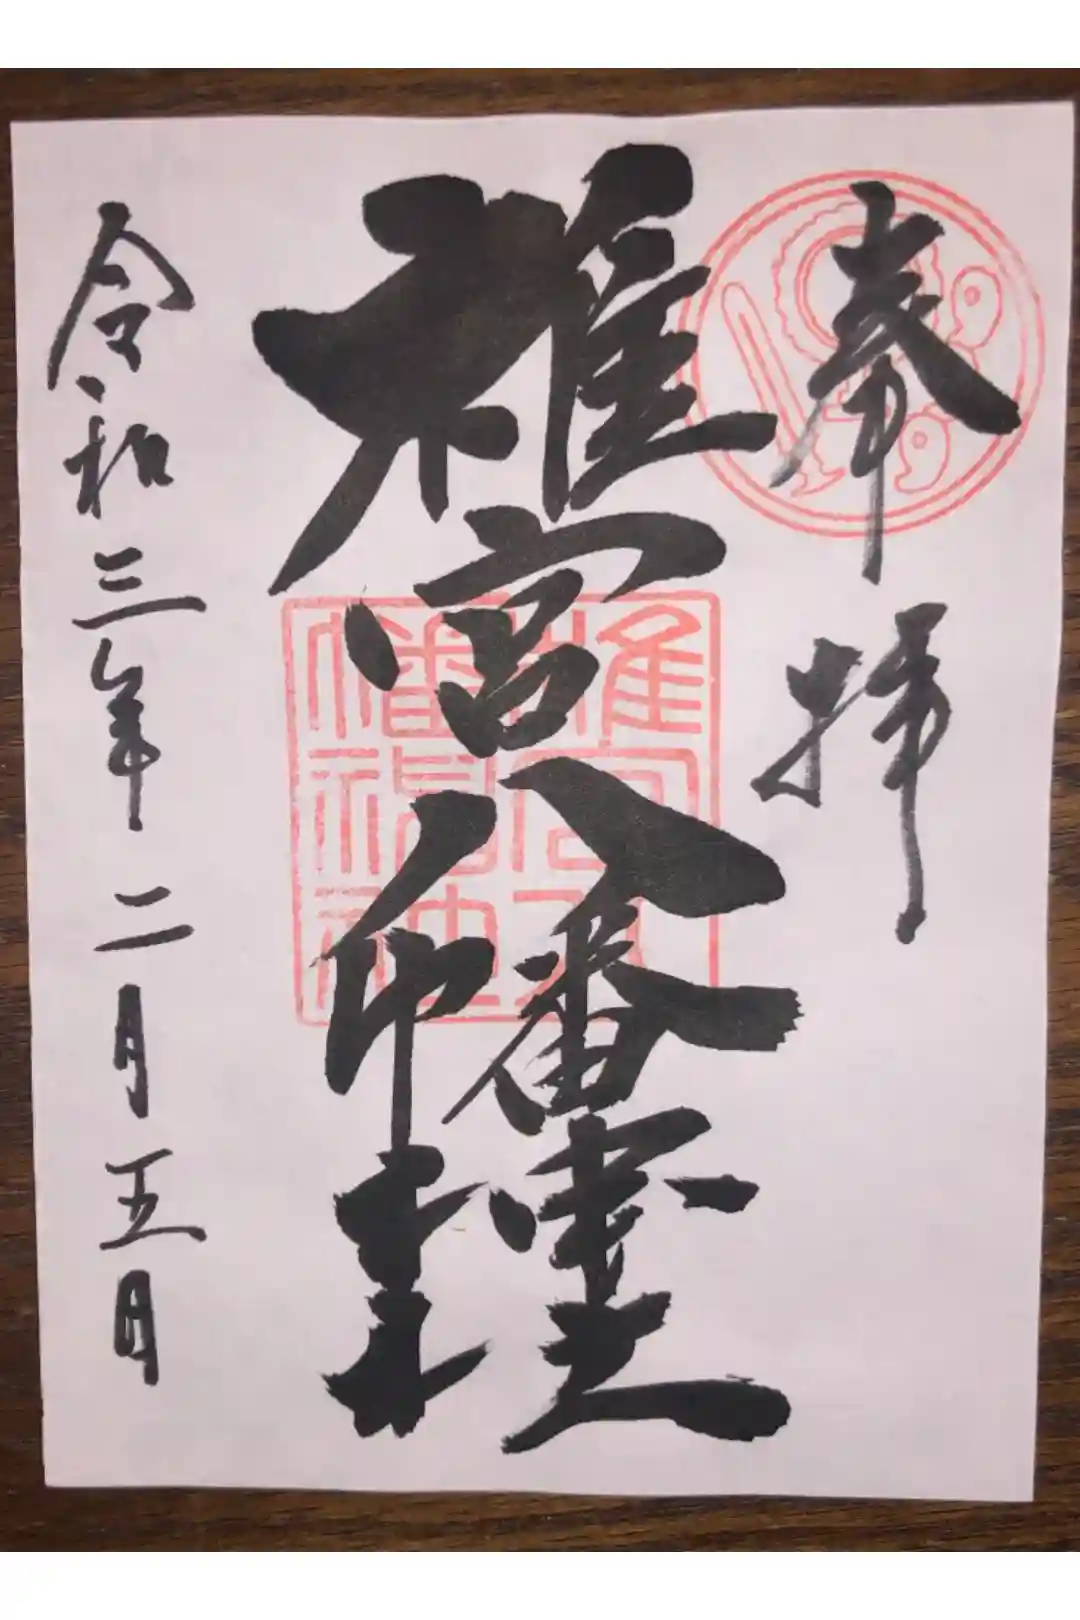 奉拝
椎宮八幡
椎宮八
幡神社
令和三年二月五日